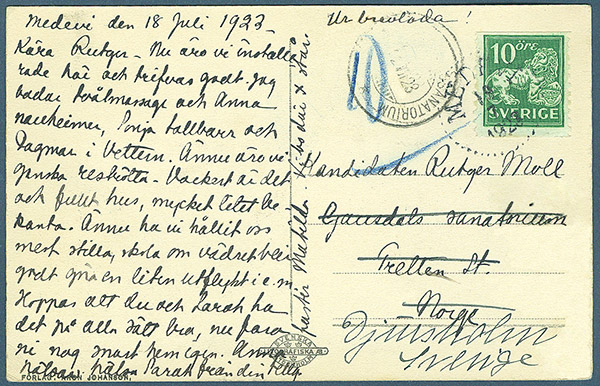 Medevi den 18 Juli 1923.
Kära Rutger - Nu äro vi installe
rade här och trifvas godt. Jag
badar tvålmassage och Anna
nauheimer, Sonja tallbarr och
Dagmar i Vettern. Ännu äro vi
ganska reströtta. Vackert är det
och fullt hus, mycket litet be
kanta. Ännu ha vi hållit oss
mest stilla, skola om vädret blir
godt göra en liten utflykt i e.m.
Hoppas att du och Sarah ha
det på alla sätt bra, nu fara
ni nog snart hem igen. Anna
hälsar, hälsa Sarah från din
FÖRLAG: ARON JOHANSON,
Vi bo där x står.
SVENSKA
Ur brevlåda!
10
SANATORIUM
10 ÖRE
SVERIGE
Kandidaten Rutger Moll
Gausdals Sanatorium
Tretten St.
Norge
Djursholm
Sverige